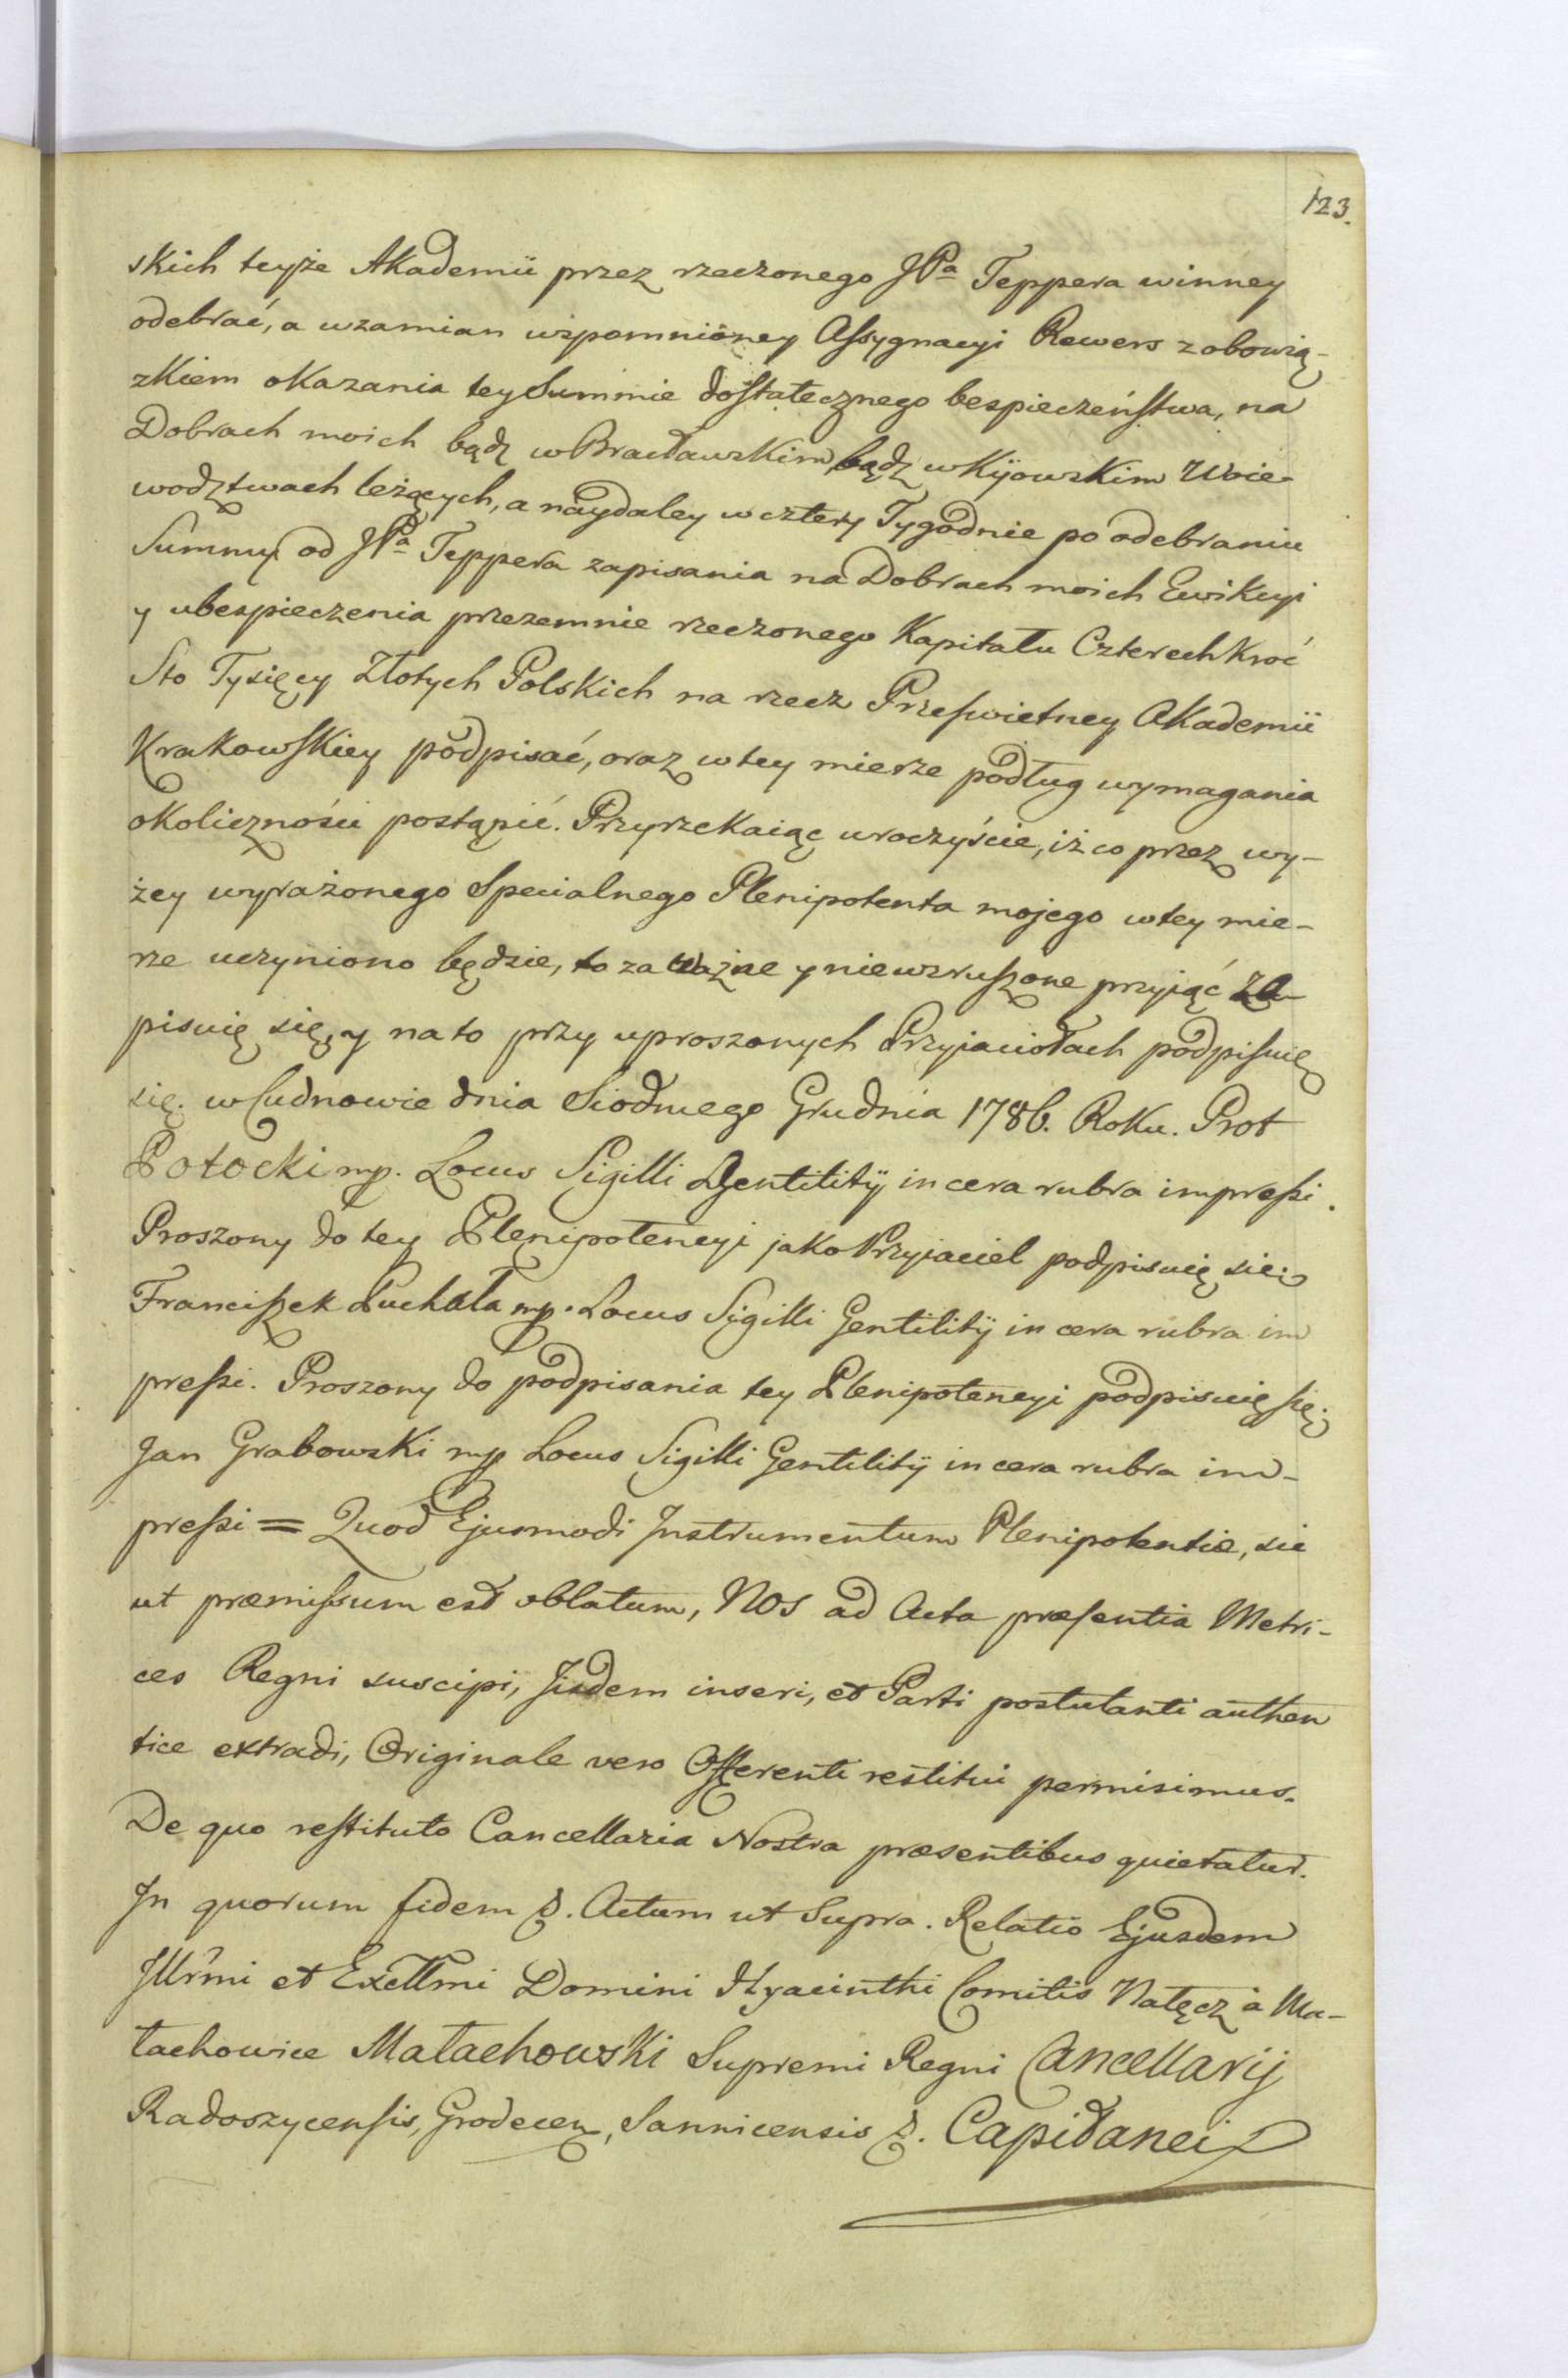 123.
skich teyże Akademii przez rzeczonego JPa Teppera winney
odebrać, a wzamian wspomnioney Assygnacyi Rewers z obowią-
zkiem okazania tey Summie dostatecznego bespieczeństwa, na
Dobrach moich bądz w Bracławskim, bądz w Kijowskim Woie-
wodztwach leżących, a naydaley w cztery Tygodnie po odebraniu
Summy od JPa Teppera zapisania na Dobrach moich Ewikcyi
y ubespieczenia przezemnie rzeczonego Kapitału Czterechkroć
Sto Tysięcy Złotych Polskich na rzecz Prześwietney Akademii
Krakowskiey podpisać, oraz w tey mierze podług wymagania
okoliczności postąpić. Przyrzekaiąc uroczyście, iż co przez wy-
żey wyrażonego Specialnego Plenipotenta mojego w tey mie-
rze uczyniono będzie, to za ważne y niewzruszone przyjąć za-
pisuię się, y na to przy uproszonych Przyjaciołach podpisuię
się. w Cudnowie dnia Siodmego Grudnia 1786. Roku. Prot
Potocki mp. Locus Sigilli Gentilitij in cera rubra impressi.
Proszony do tey Plenipotencyi jako Przyjaciel podpisuię się.
Franciszek Puchała mp. Locus Sigilli Gentilitij in cera rubra im
pressi. Proszony do podpisania tey Plenipotencyi podpisuię się.
Jan Grabowski mp Locus Sigilli Gentilitij in cera rubra im-
pressi = Quod Ejusmodi Instrumentum Plenipotentiæ, sic
ut præmissum est oblatum, Nos ad Acta præsentia Metri-
ces Regni suscipi, Jisdem inseri, et Parti postulanti authen
tice extradi, Originale vero Offerenti restitui permisimus.
De quo restituto Cancellaria Nostra præsentibus quietatur.
In quorum fidem &. Actum ut Supra. Relatio Ejusdem
Jllrmi et Excllmi Domini Hyacinthi Comitis Nałęcz à Ma-
łachowice Małachowski Supremi Regni Cancellarij
Radoszycensis, Grodecen, Sannicensis &. Capitanei